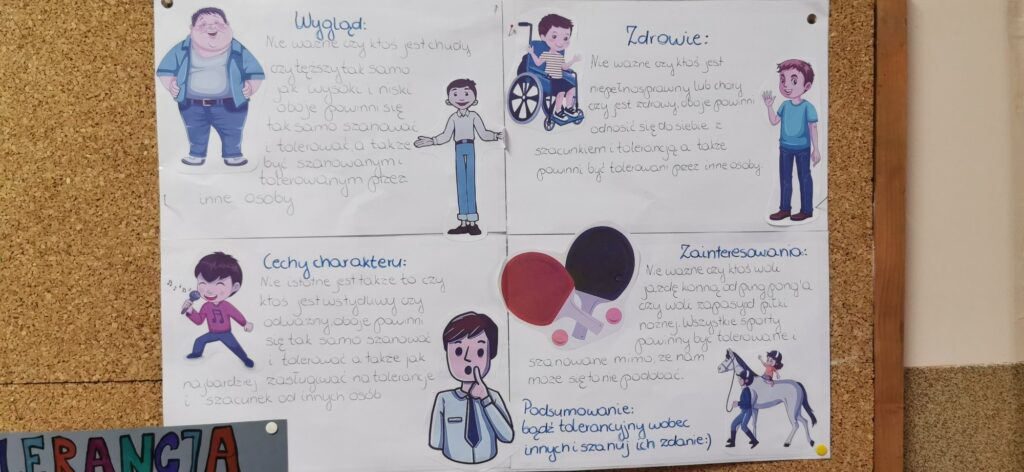 Wygląd:
Nie ważne czy ktoś jest chudy
czy tęższy tak samo
jak wysoki i niski
oboje powinni się
tak samo szanować
i tolerować a także
być szanowanym i
tolerowanym przez
inne osoby
Zdrowie:
Nie ważne czy ktoś jest
niepełnosprawny lub chory
czy jest zdrowy oboje powinni
odnosić się do siebie z
szacunkiem i tolerancją a także
powinni być tolerowani peez inne osoby.
Cechy charakteru:
Nie istotne jest także to czy
ktoś jest wstydliwy czy
odważny oboje powinni
się tak samo szanować
i tolerować a także jak
najbardziej zasługiwać na tolerancje
i szacunek od innych osób
Zainteresowania:
Nie ważne czy ktoś woli
jazdę konną od ping pong'a
czy woli zapasy od piłki
nożnej. Wszystkie sporty
powinny być tolerowane i
szanowane mimo, że nam
może się to nie podobać.
Podsumowanie:
bądź tolerancyjny wobec
innych i szanuj ich zdanie:)
LERANCJA